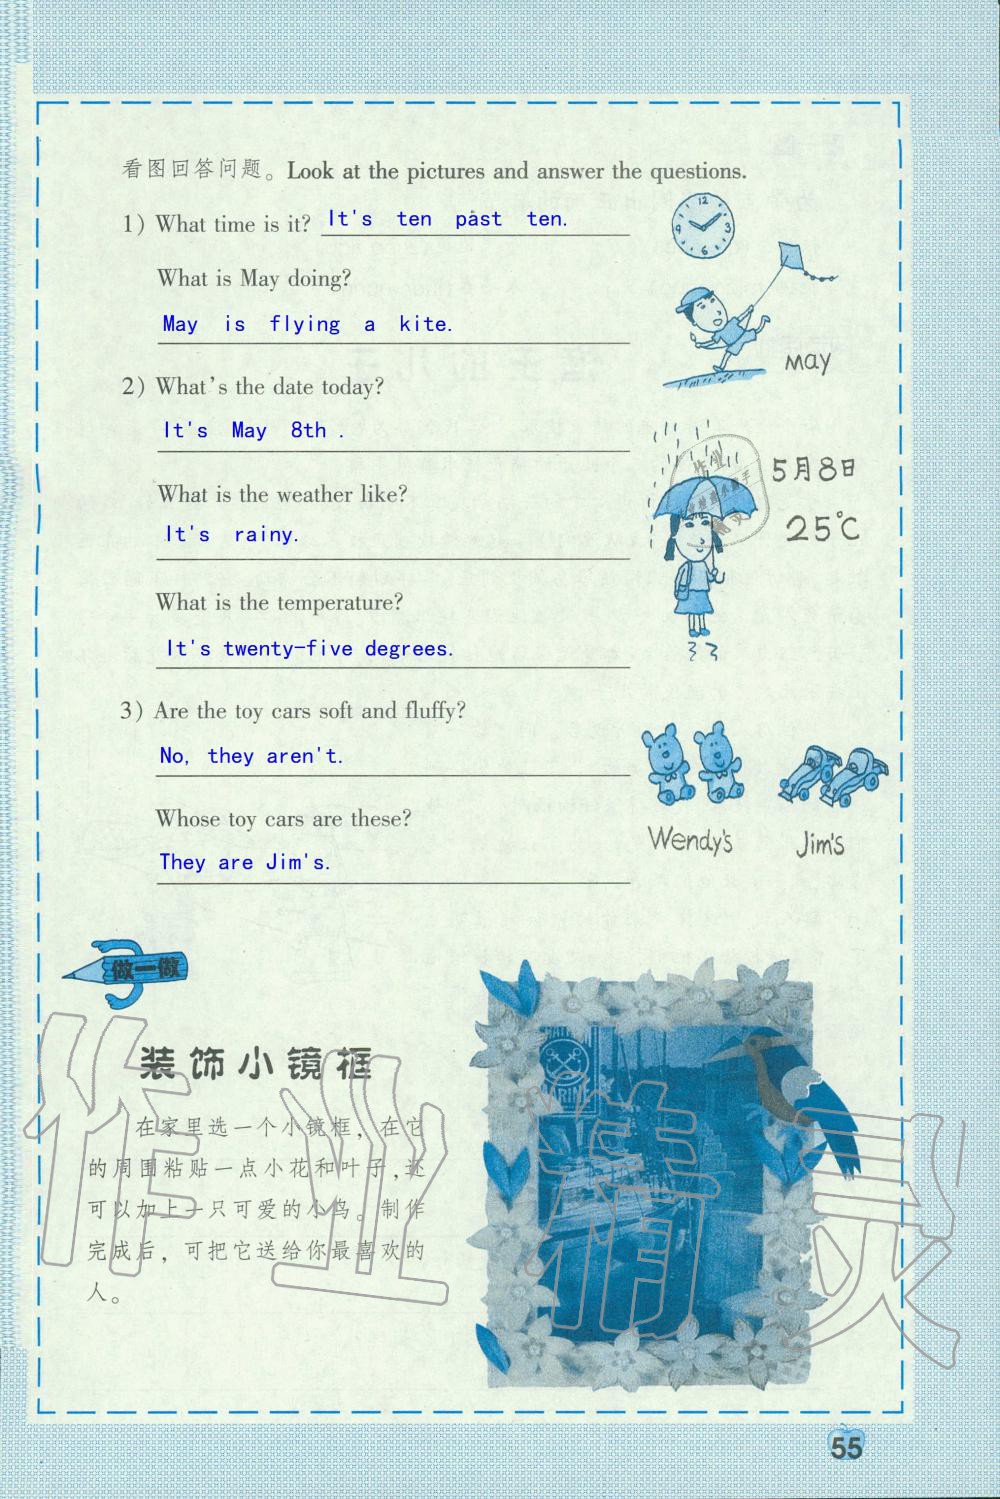 看图回答问题。Look at the pictures and answer the questions.
1) What time is it? It's ten past ten.
What is May doing?
May is flying a kite.
may
2) What's the date today?
It's May 8th .
5月8日
What is the weather like?
It's rainy.
25℃
What is the temperature?
It's twenty-five degrees.
3) Are the toy cars soft and fluffy?
No, they aren't.
Whose toy cars are these?
They are Jim's.
Wendy's Jim's
做一做
装饰小镜框
在家里选一个小镜框，在它
的周围粘贴一点小花和叶子,还
可以加上一只可爱的小鸟。制作
完成后，可把它送给你最喜欢的
人。
MARINE
作业精灵
55